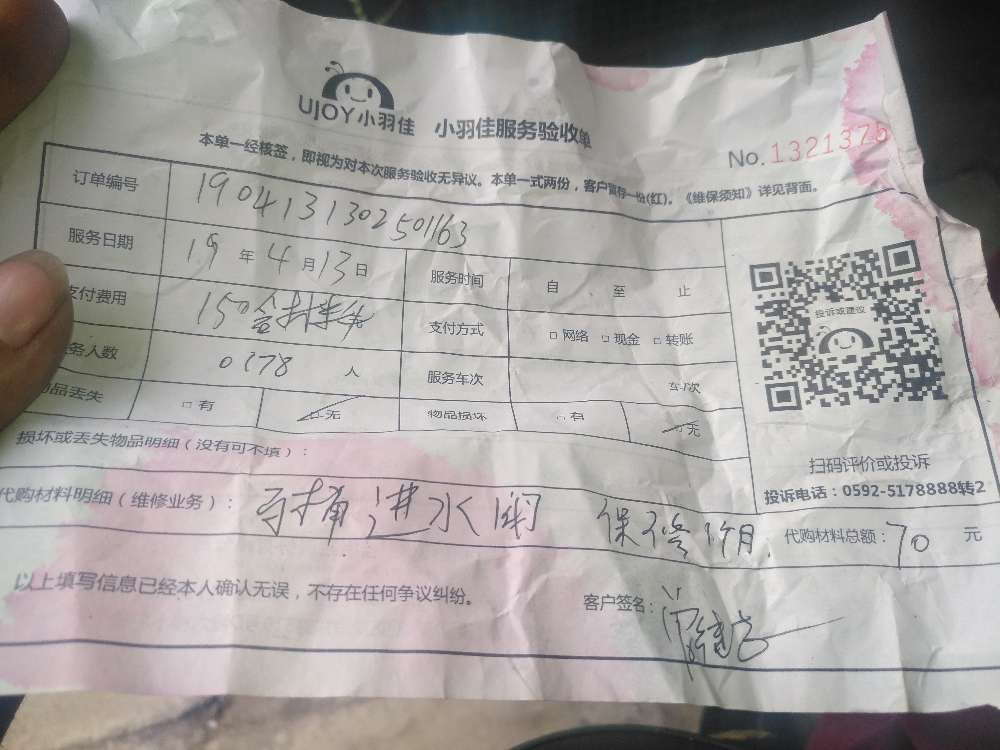 UJOY小羽佳 小羽佳服务验收单
No.1321375
本单一经核签，即视为对本次服务验收无异议。本单一式两份，客户暂存一份(红)。《维保须知》详见背面。
订单编号 1904131302501163
服务日期 19年4月13日 服务时间 自 至 止
支付费用 150含材料 支付方式 □网络 □现金 □转账
务人数 0178 人 服务车次 车/次
物品丢失 □有 □无 物品损坏 □有 □无
投诉或建议
扫码评价或投诉
投诉电话：0592-5178888转2
损坏或丢失物品明细（没有可不填）：
代购材料明细（维修业务）： 马桶进水阀 保修1个月 代购材料总额：70 元
以上填写信息已经本人确认无误，不存在任何争议纠纷。 客户签名：